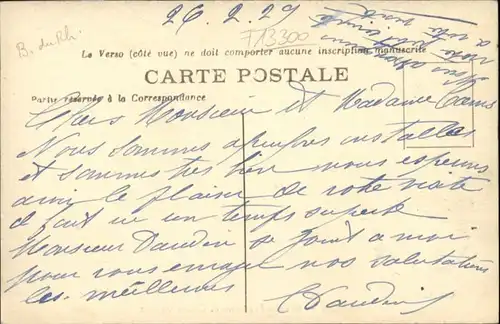 26.2.29
F13300
B. du Rh.
Le Verso (côté vue) ne doit comporter aucune inscription manuscrite
CARTE POSTALE
Partie réservée à la Correspondance
Chers Monsieur et Madame
Nous sommes a peu pres installés
et sommes tres bien nous esperons
avoir le plaisir de votre visite
il fait ici un temps superbe
Monsieur Daudin se joint a moi
pour vous envoyer nos salutations
les meilleures
Daudin